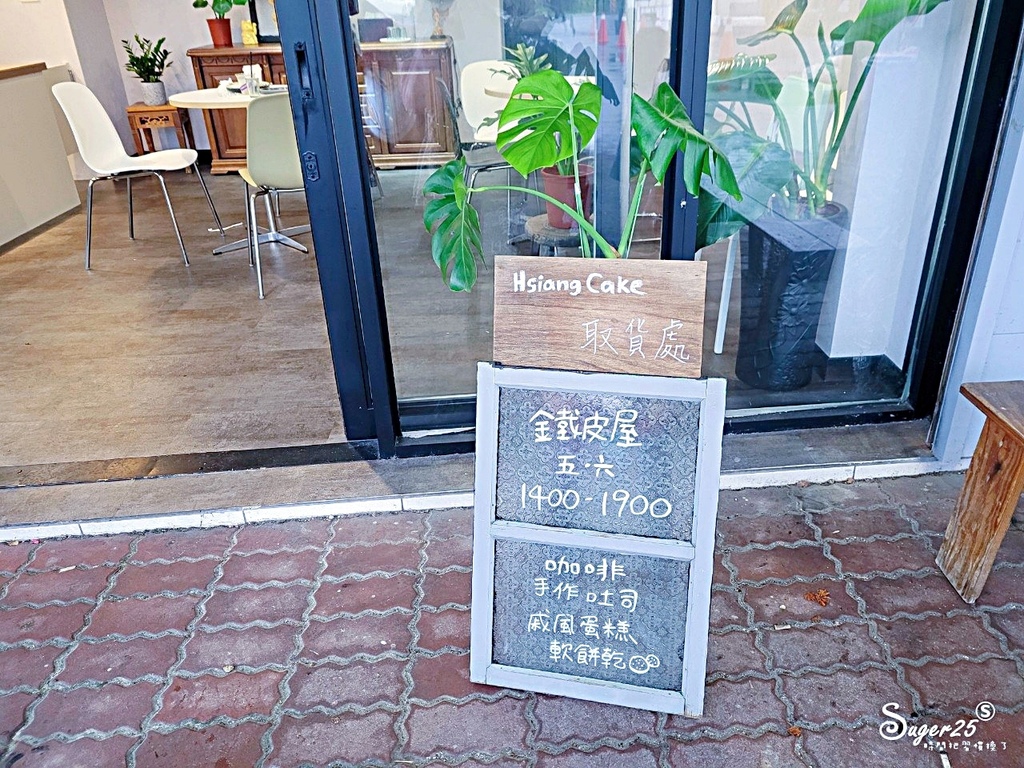 Hsiang Cake
取貨處
鐵皮屋
五·六
1400-1900
咖啡
手作吐司
戚風蛋糕
軟餅乾
Suger25 S
時間把習慣換了